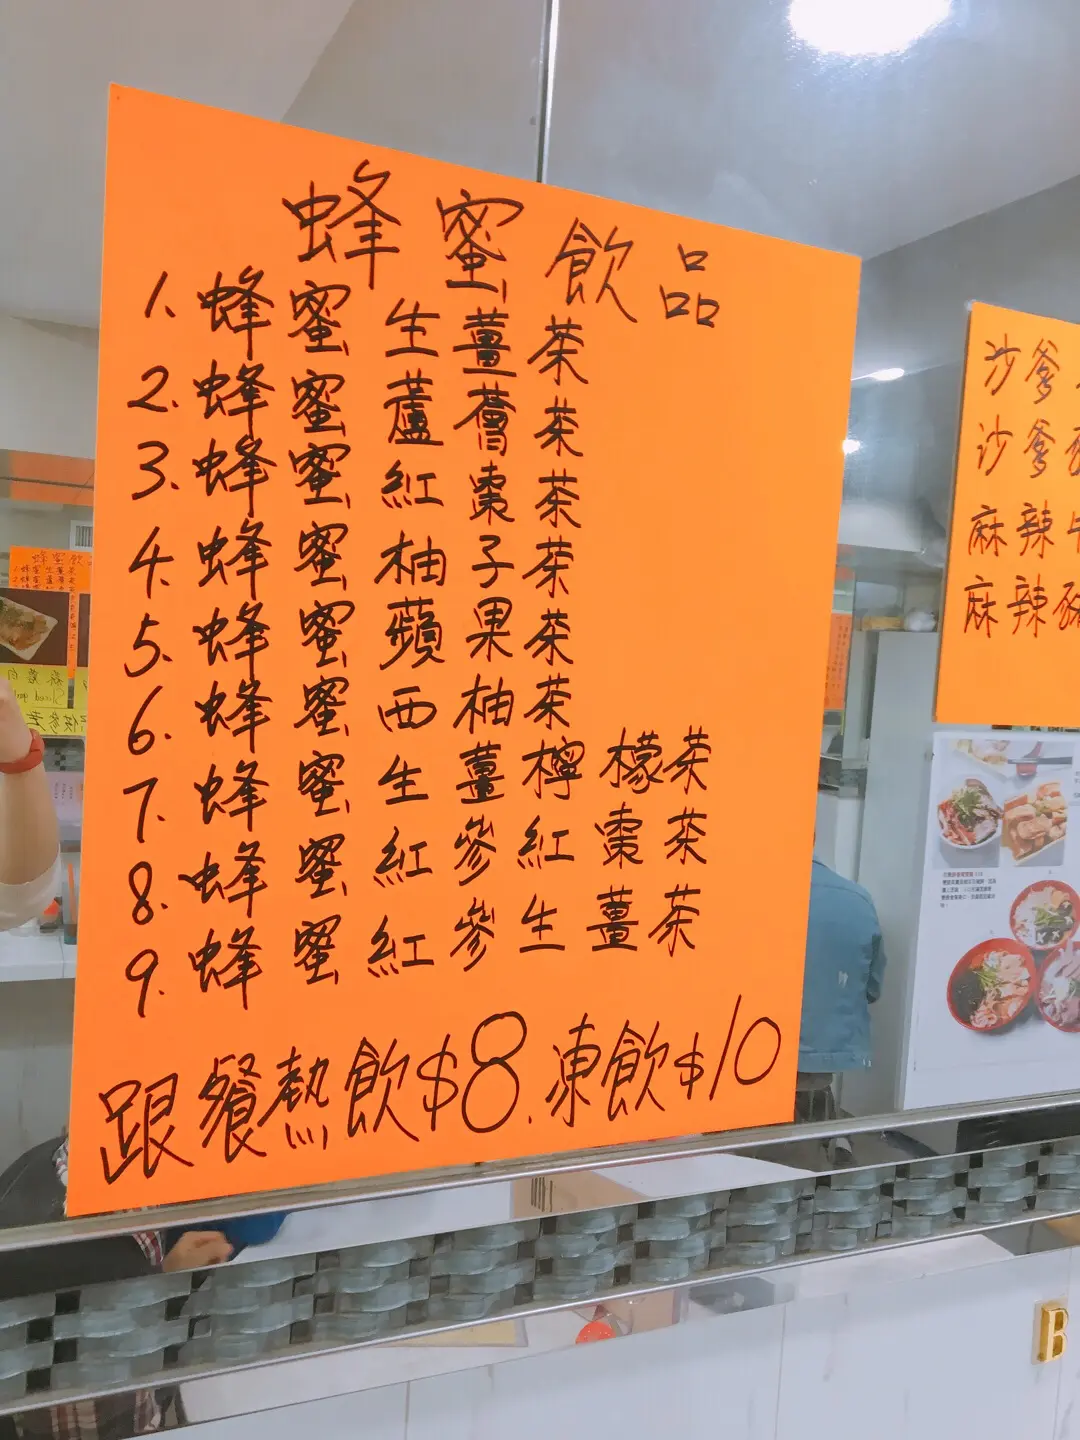 蜂蜜飲品
1. 蜂蜜生薑茶
2. 蜂蜜蘆薈茶
3. 蜂蜜紅棗茶
4. 蜂蜜柚子茶
5. 蜂蜜蘋果茶
6. 蜂蜜西柚茶
7. 蜂蜜生薑檸檬茶
8. 蜂蜜紅參紅棗茶
9. 蜂蜜紅參生薑茶
跟餐熱飲$8.凍飲$10
沙爹
沙爹
麻辣牛
麻辣豬
B